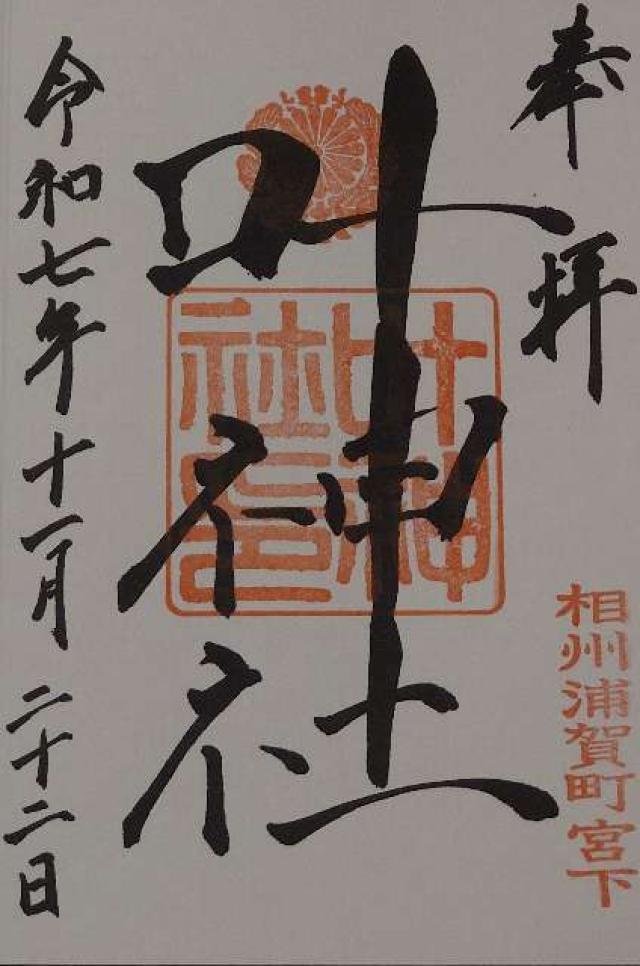 奉拝
相州浦賀町宮下
叶神社
叶神
社印
令和七年十一月二十二日